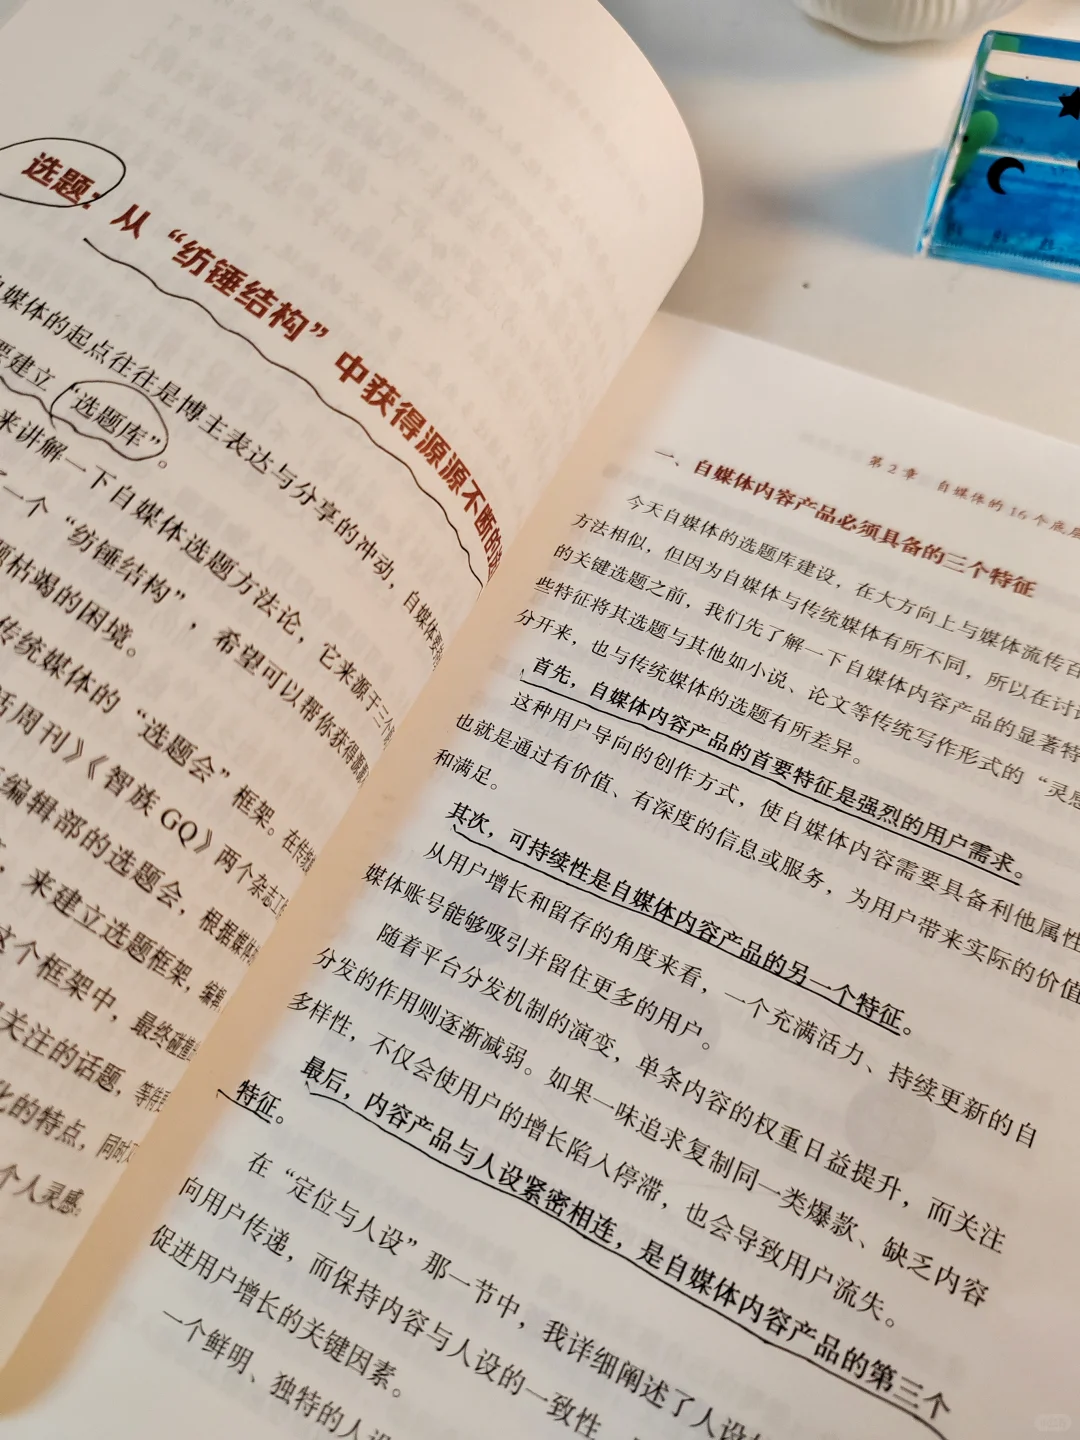 选题：从“纺锤结构”中获得源源不断的
自媒体的起点往往是博主表达与分享的冲动，自媒体
要建立“选题库”。
来讲解一下自媒体选题方法论，它来源于三个
了一个“纺锤结构”，希望可以帮你获得源源
题枯竭的困境。
传统媒体的“选题会”框架。在传统
活周刊》《智族GQ》两个杂志工
编辑部的选题会，根据媒体
，来建立选题框架，编辑
这个框架中，最终碰撞
关注的话题，等待
化的特点，同时
个人灵感。
第2章 自媒体的16个底层
一、自媒体内容产品必须具备的三个特征
今天自媒体的选题库建设，在大方向上与媒体流传百
方法相似，但因为自媒体与传统媒体有所不同，所以在讨论
的关键选题之前，我们先了解一下自媒体内容产品的显著特
些特征将其选题与其他如小说、论文等传统写作形式的“灵感
分开来，也与传统媒体的选题有所差异。
首先，自媒体内容产品的首要特征是强烈的用户需求。
这种用户导向的创作方式，使自媒体内容需要具备利他属性
也就是通过有价值、有深度的信息或服务，为用户带来实际的价值
和满足。
其次，可持续性是自媒体内容产品的另一个特征。
从用户增长和留存的角度来看，一个充满活力、持续更新的自
媒体账号能够吸引并留住更多的用户。
随着平台分发机制的演变，单条内容的权重日益提升，而关注
分发的作用则逐渐减弱。如果一味追求复制同一类爆款、缺乏内容
多样性，不仅会使用户的增长陷入停滞，也会导致用户流失。
最后，内容产品与人设紧密相连，是自媒体内容产品的第三个
特征。
在“定位与人设”那一节中，我详细阐述了人设
向用户传递，而保持内容与人设的一致性，
促进用户增长的关键因素。
一个鲜明、独特的人设